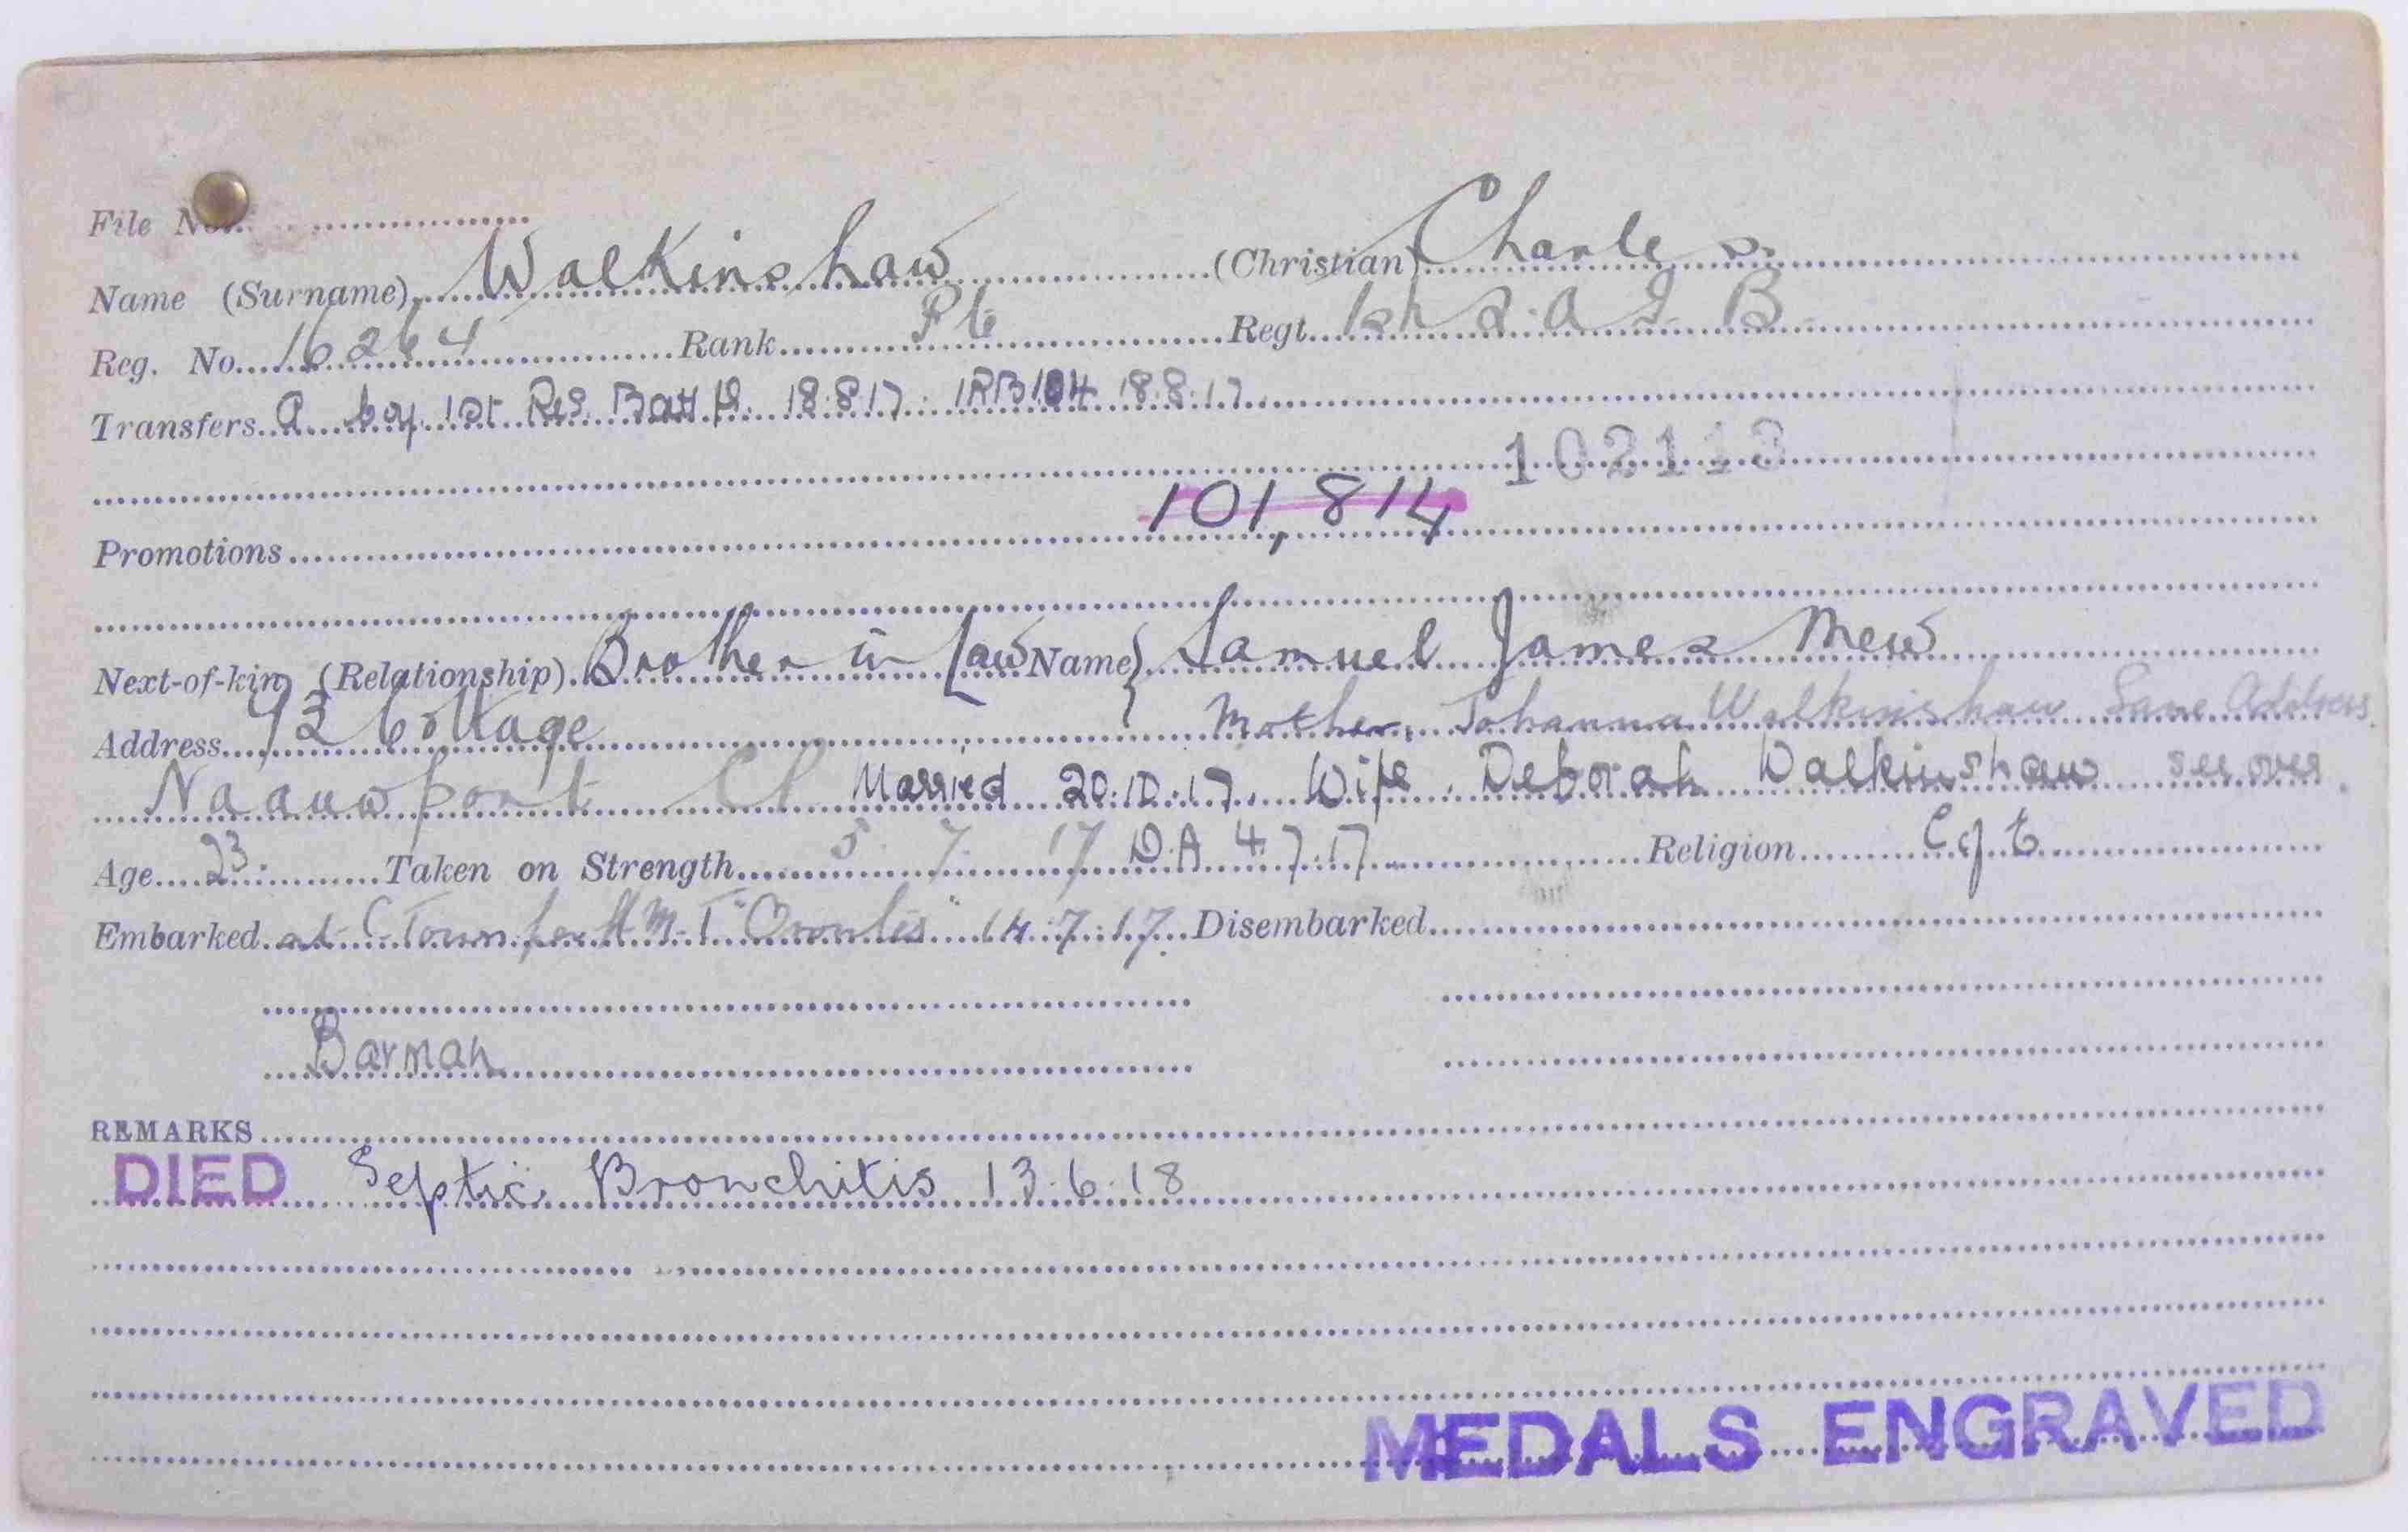 File No.
Name (Surname) Walkinshaw (Christian) Charles
Reg. No. 16264 Rank Pte Regt. 1st S.A.I.B.
Transfers A Coy 1st Res. Battn. 18.8.17. 1RB104 18.8.17
102113
101,814
Promotions
Next-of-kin (Relationship) Brother in Law Name) Samuel James Mew
Address 93 Cottage Mother, Johanna Walkinshaw Same Address.
Naauwpoort CP Married 20.10.17. Wife. Deborah Walkinshaw see over.
Age 23. Taken on Strength 5 7 17 D.A 4.7.17 Religion C of E
Embarked at C Town per H.M.T "Orontes" 14.7.17. Disembarked
Barman
REMARKS
DIED Septic Bronchitis 13.6.18
MEDALS ENGRAVED